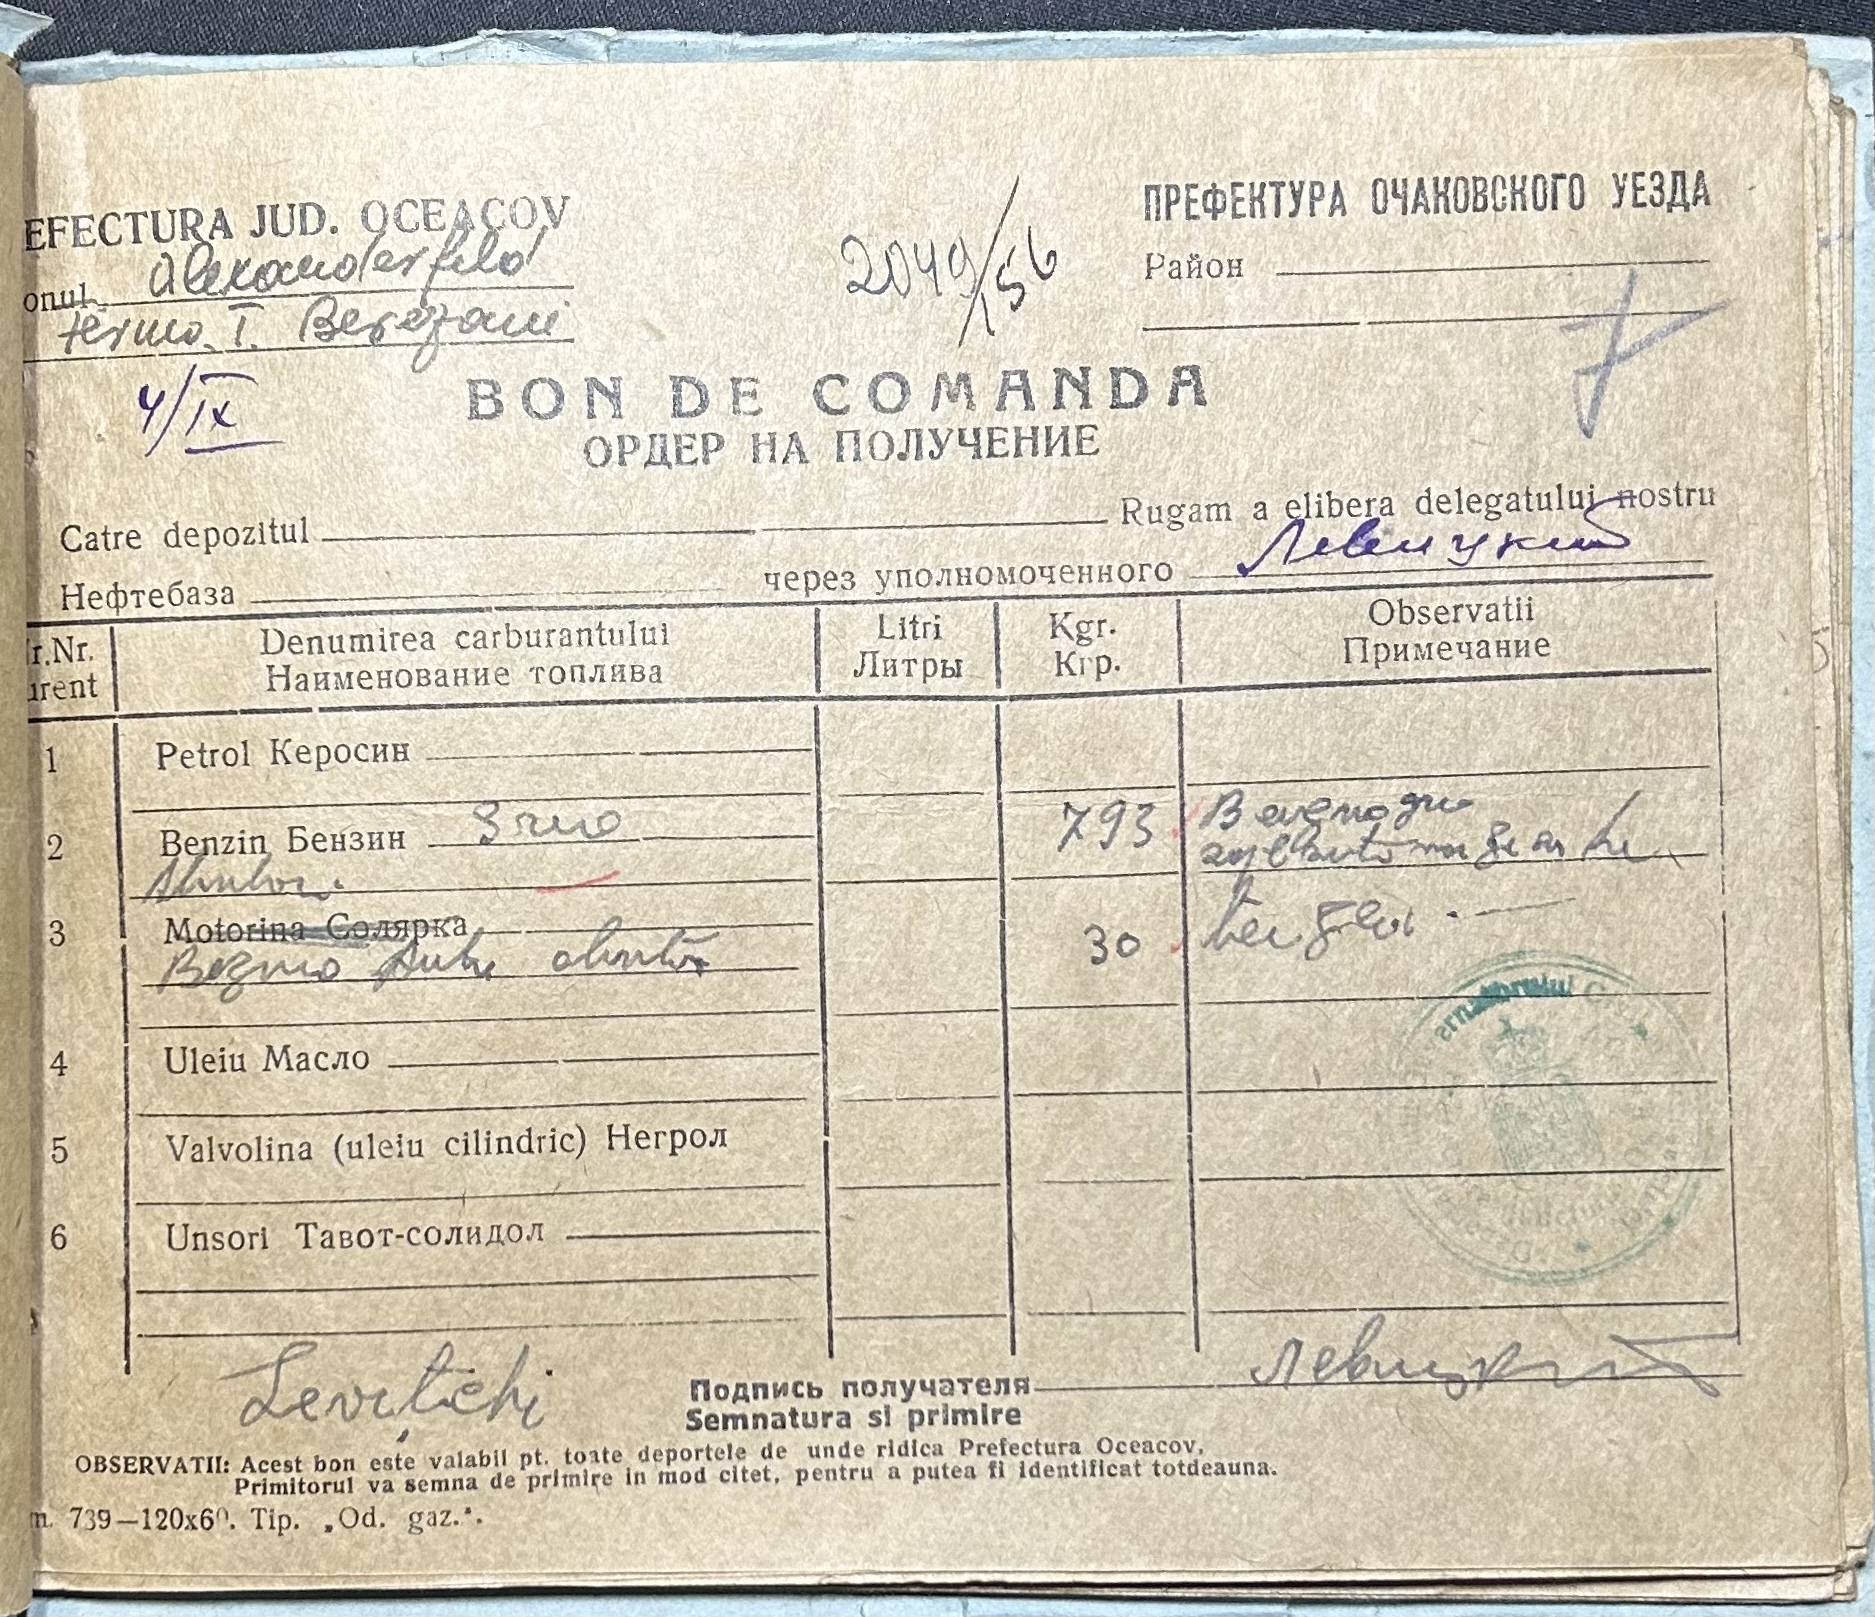 EFECTURA JUD. OCEACOV
ПРЕФЕКТУРА ОЧАКОВСКОГО УЕЗДА
onul Alexanderfeld
2049/156
Район
ferma. I. Berezani
7
4/IX
BON DE COMANDA
ОРДЕР НА ПОЛУЧЕНИЕ
Catre depozitul Rugam a elibera delegatului nostru
Нефтебаза через уполномоченного Левицкий
r.Nr. Denumirea carburantului Litri Kgr. Observatii
urent Наименование топлива Литры Кгр. Примечание
1 Petrol Керосин
2 Benzin Бензин 793
3 Motorina Солярка
30
4 Uleiu Масло
5 Valvolina (uleiu cilindric) Негрол
6 Unsori Тавот-солидол
Levitchi Подпись получателя Левицкий
Semnatura si primire
OBSERVATII: Acest bon este valabil pt. toate deportele de unde ridica Prefectura Oceacov.
Primitorul va semna de primire in mod citet, pentru a putea fi identificat totdeauna.
m. 739—120x60. Tip. „Od. gaz.".